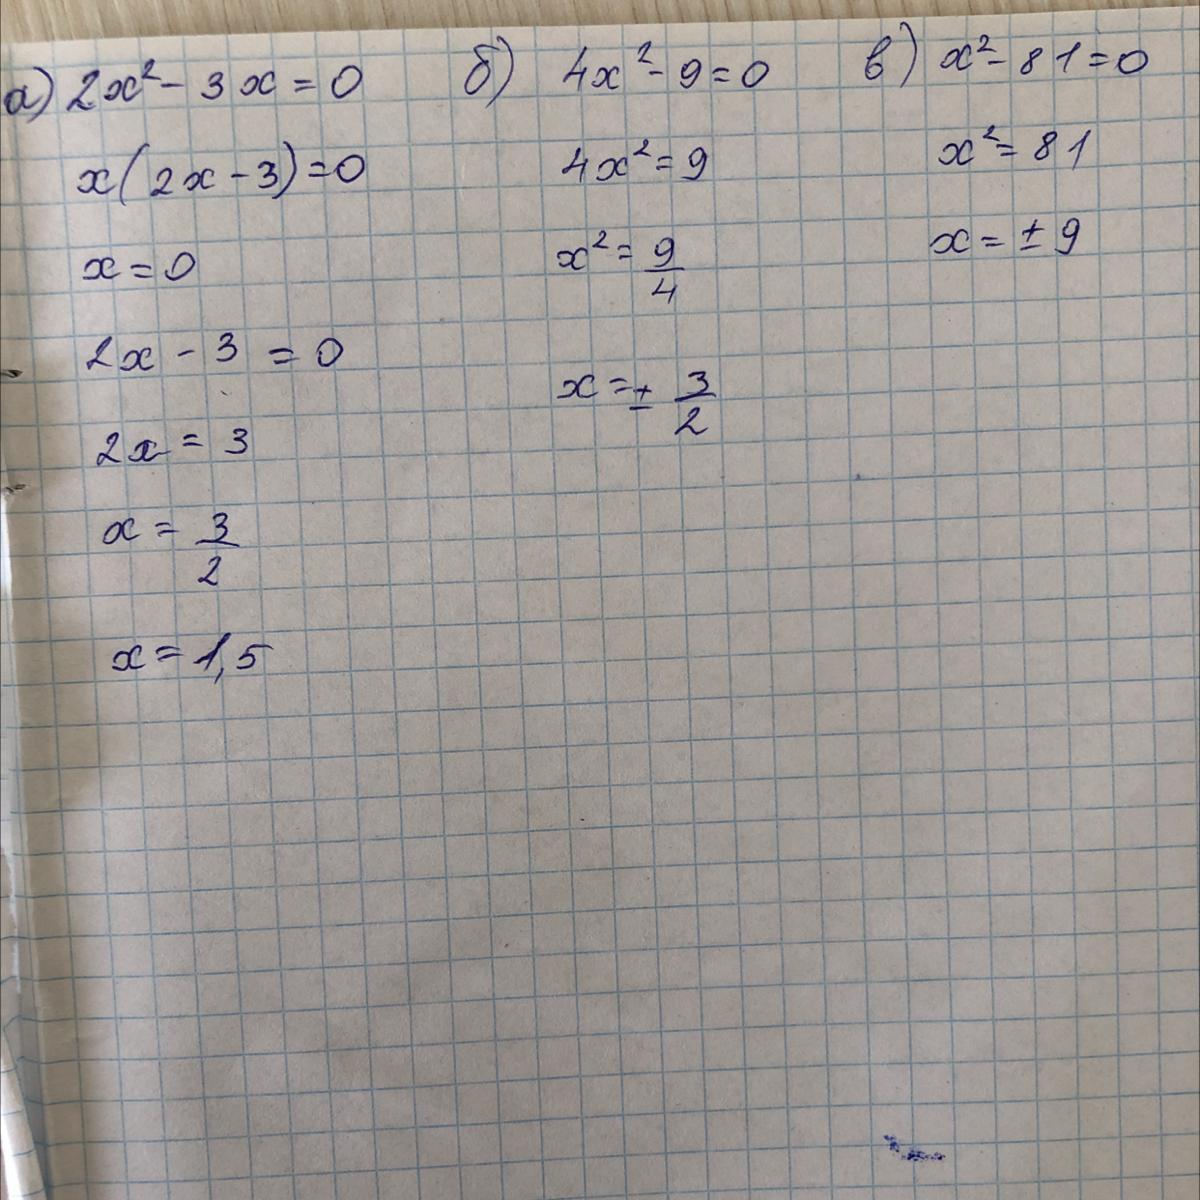 а) 2x² - 3x = 0
x(2x - 3) = 0
x = 0
2x - 3 = 0
2x = 3
x = 3/2
x = 1,5
б) 4x² - 9 = 0
4x² = 9
x² = 9/4
x = ± 3/2
в) x² - 81 = 0
x² = 81
x = ± 9